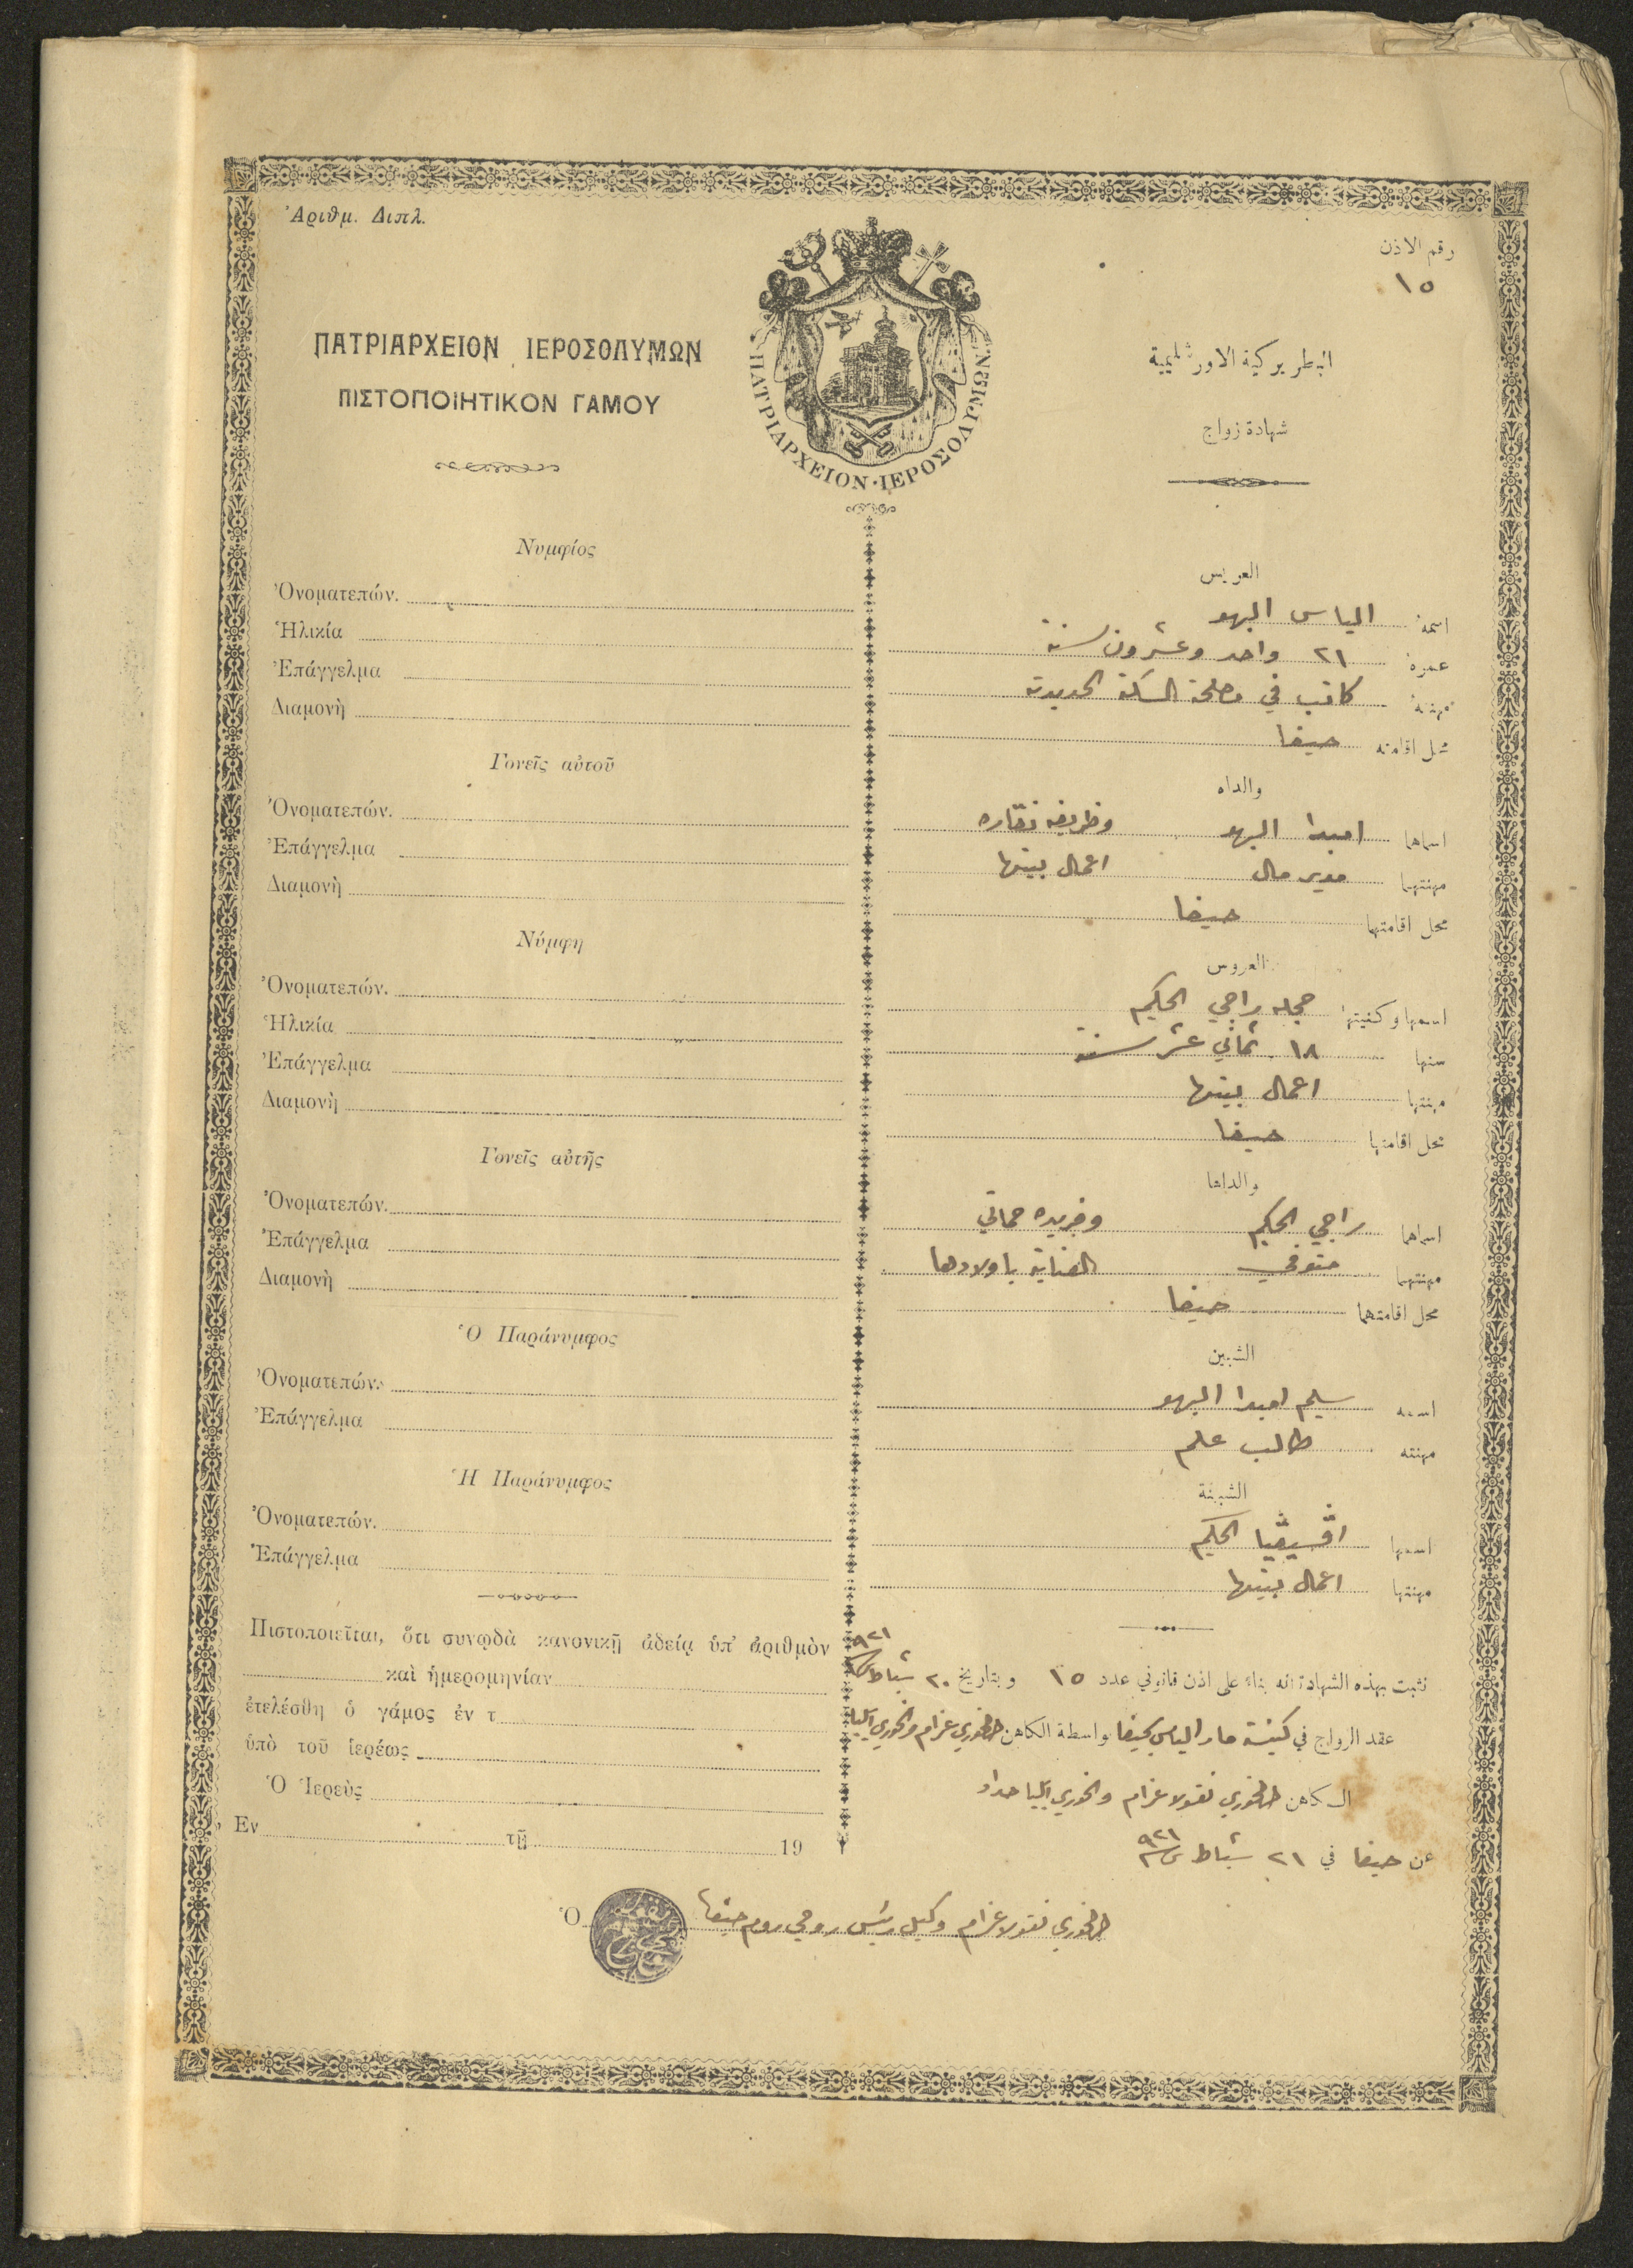 Ἀριθμ. Διπλ.
رقم الاذن
١٥
ΠΑΤΡΙΑΡΧΕΙΟΝ ΙΕΡΟΣΟΛΥΜΩΝ
ΠΙΣΤΟΠΟΙΗΤΙΚΟΝ ΓΑΜΟΥ
ΠΑΤΡΙΑΡΧΕΙΟΝ·ΙΕΡΟΣΟΛΥΜΩΝ
البطريركية الاورشليمية
شهادة زواج
Νυμφίος
Ὀνοματεπών.
Ἡλικία
Ἐπάγγελμα
Διαμονὴ
Γονεῖς αὐτοῦ
Ὀνοματεπών.
Ἐπάγγελμα
Διαμονὴ
Νύμφη
Ὀνοματεπών.
Ἡλικία
Ἐπάγγελμα
Διαμονὴ
Γονεῖς αὐτῆς
Ὀνοματεπών.
Ἐπάγγελμα
Διαμονὴ
Ὁ Παράνυμφος
Ὀνοματεπών.
Ἐπάγγελμα
Ἡ Παράνυμφος
Ὀνοματεπών.
Ἐπάγγελμα
Πιστοποιεῖται, ὅτι συνῳδὰ κανονικῇ ἀδείᾳ ὑπ' ἀριθμὸν
καὶ ἡμερομηνίαν
ἐτελέσθη ὁ γάμος ἐν τ
ὑπὸ τοῦ ἱερέως
Ὁ Ἱερεὺς
Ἐν τῇ 19
العريس
اسمه الياس البهو
عمره ٢١ واحد وعشرون سنة
مهنته كاتب في مصلحة السكة الحديدية
محل اقامته حيفا
والداه
اسماهما البهو وظريفه نقاره
مهنتهما مدير مال اعمال بيتها
محل اقامتهما حيفا
العروس
اسمها وكنيتها راجي الحكيم
سنها ١٨ ثماني عشر سنة
مهنتها اعمال بيتها
محل اقامتها حيفا
والداها
اسماهما راجي الحكيم وفريده حماتي
مهنتهما متوفي العناية باولادها
محل اقامتهما حيفا
الشبين
اسمه سليم البهو
مهنته طالب علم
الشبينة
اسمها الحكيم
مهنتها اعمال بيتها
نثبت بهذه الشهادة انه بناء على اذن قانوني عدد ١٥ وبتاريخ ٢٠ شباط ٩٢١
عقد الزواج في كنيسة مار الياس بحيفا بواسطة الكاهن الخوري عزام والخوري ايليا
الكاهن الخوري نقولا عزام والخوري ايليا حداد
عن حيفا في ٢١ شباط ٩٢١
Ὁ الخوري نقولا عزام وكيل رئيس روحي روم حيفا